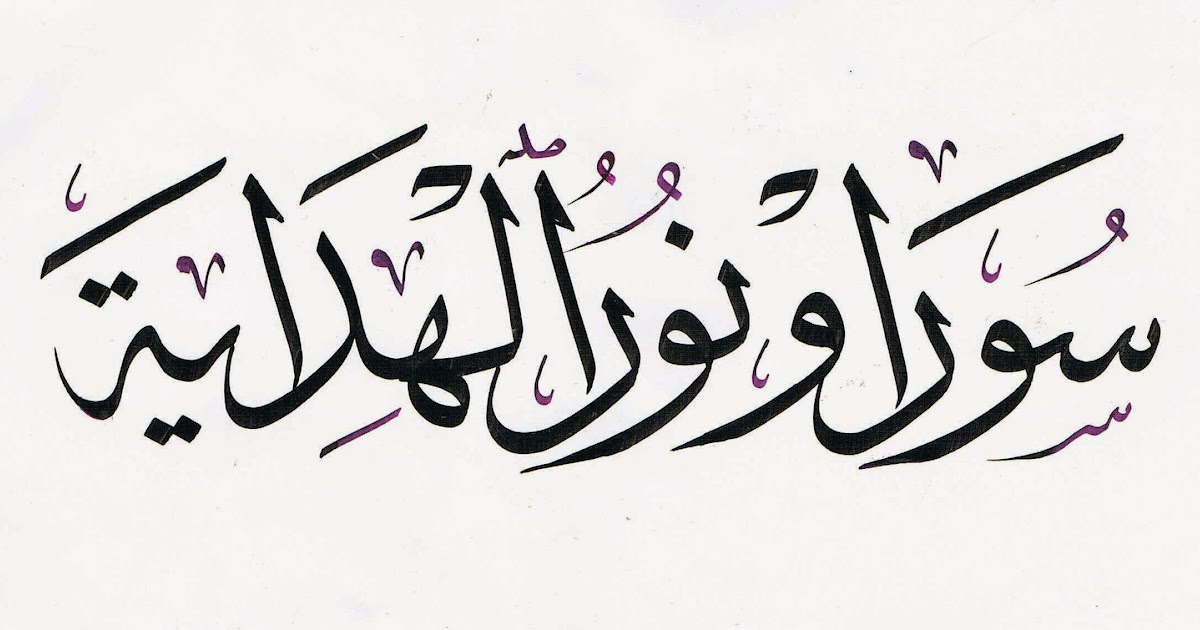 سُورَاوْ نُورُ ٱلْهِدَايَة